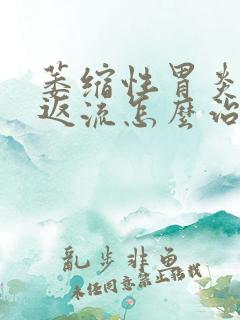 萎缩性胃炎
返流怎麼治
亂步非鱼
未经同意禁止转载